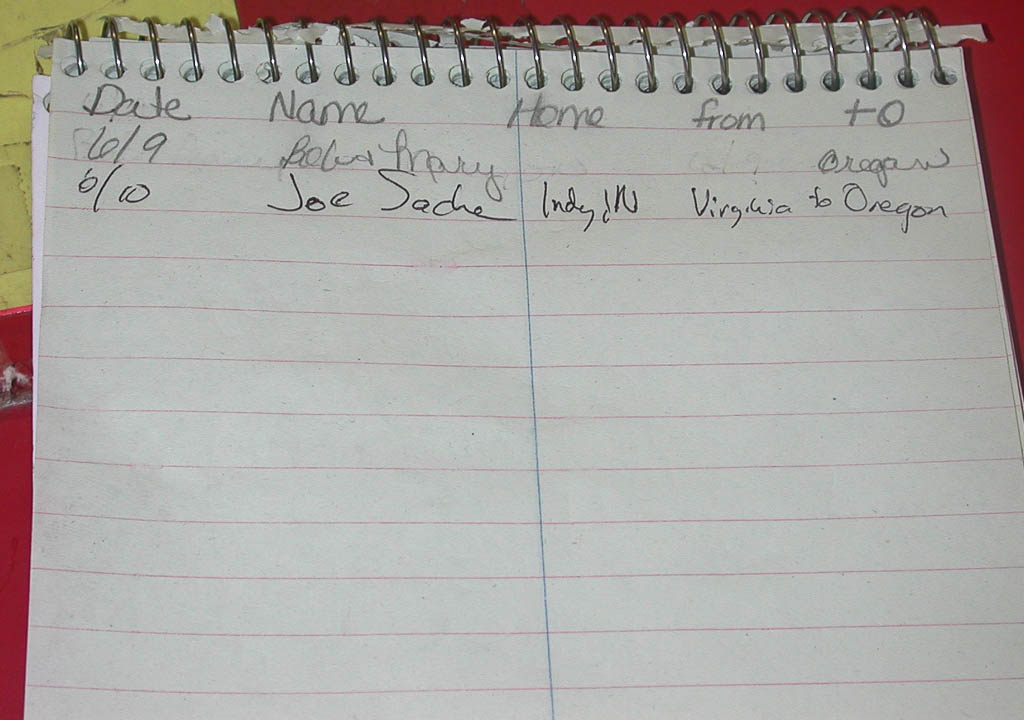 Date Name Home from to
6/9 Mary Oregon
6/10 Joe Sache Indy, IN Virginia to Oregon